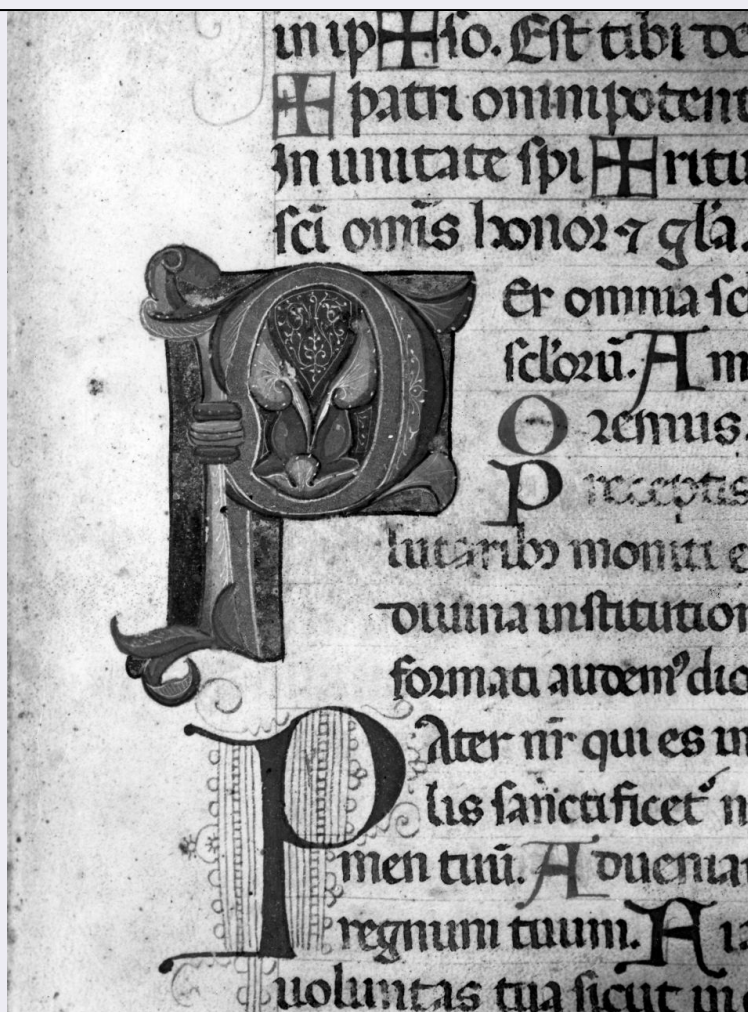 in ip✠so. Est tibi de
✠ patri omnipotent
In unitate spi✠ritu
sci omĩs honor ⁊ gl̃a.
Per omnia sc
scl'orũ. Am
Oremus.
Preceptis
lutaribꝫ moniti e
diuina institution
formati audem⁹ dic
Pater nr̃ qui es in
lis sanctificet᷑ n
men tuũ. Aduenia
regnum tuum. Fi
uoluntas tua sicut in c